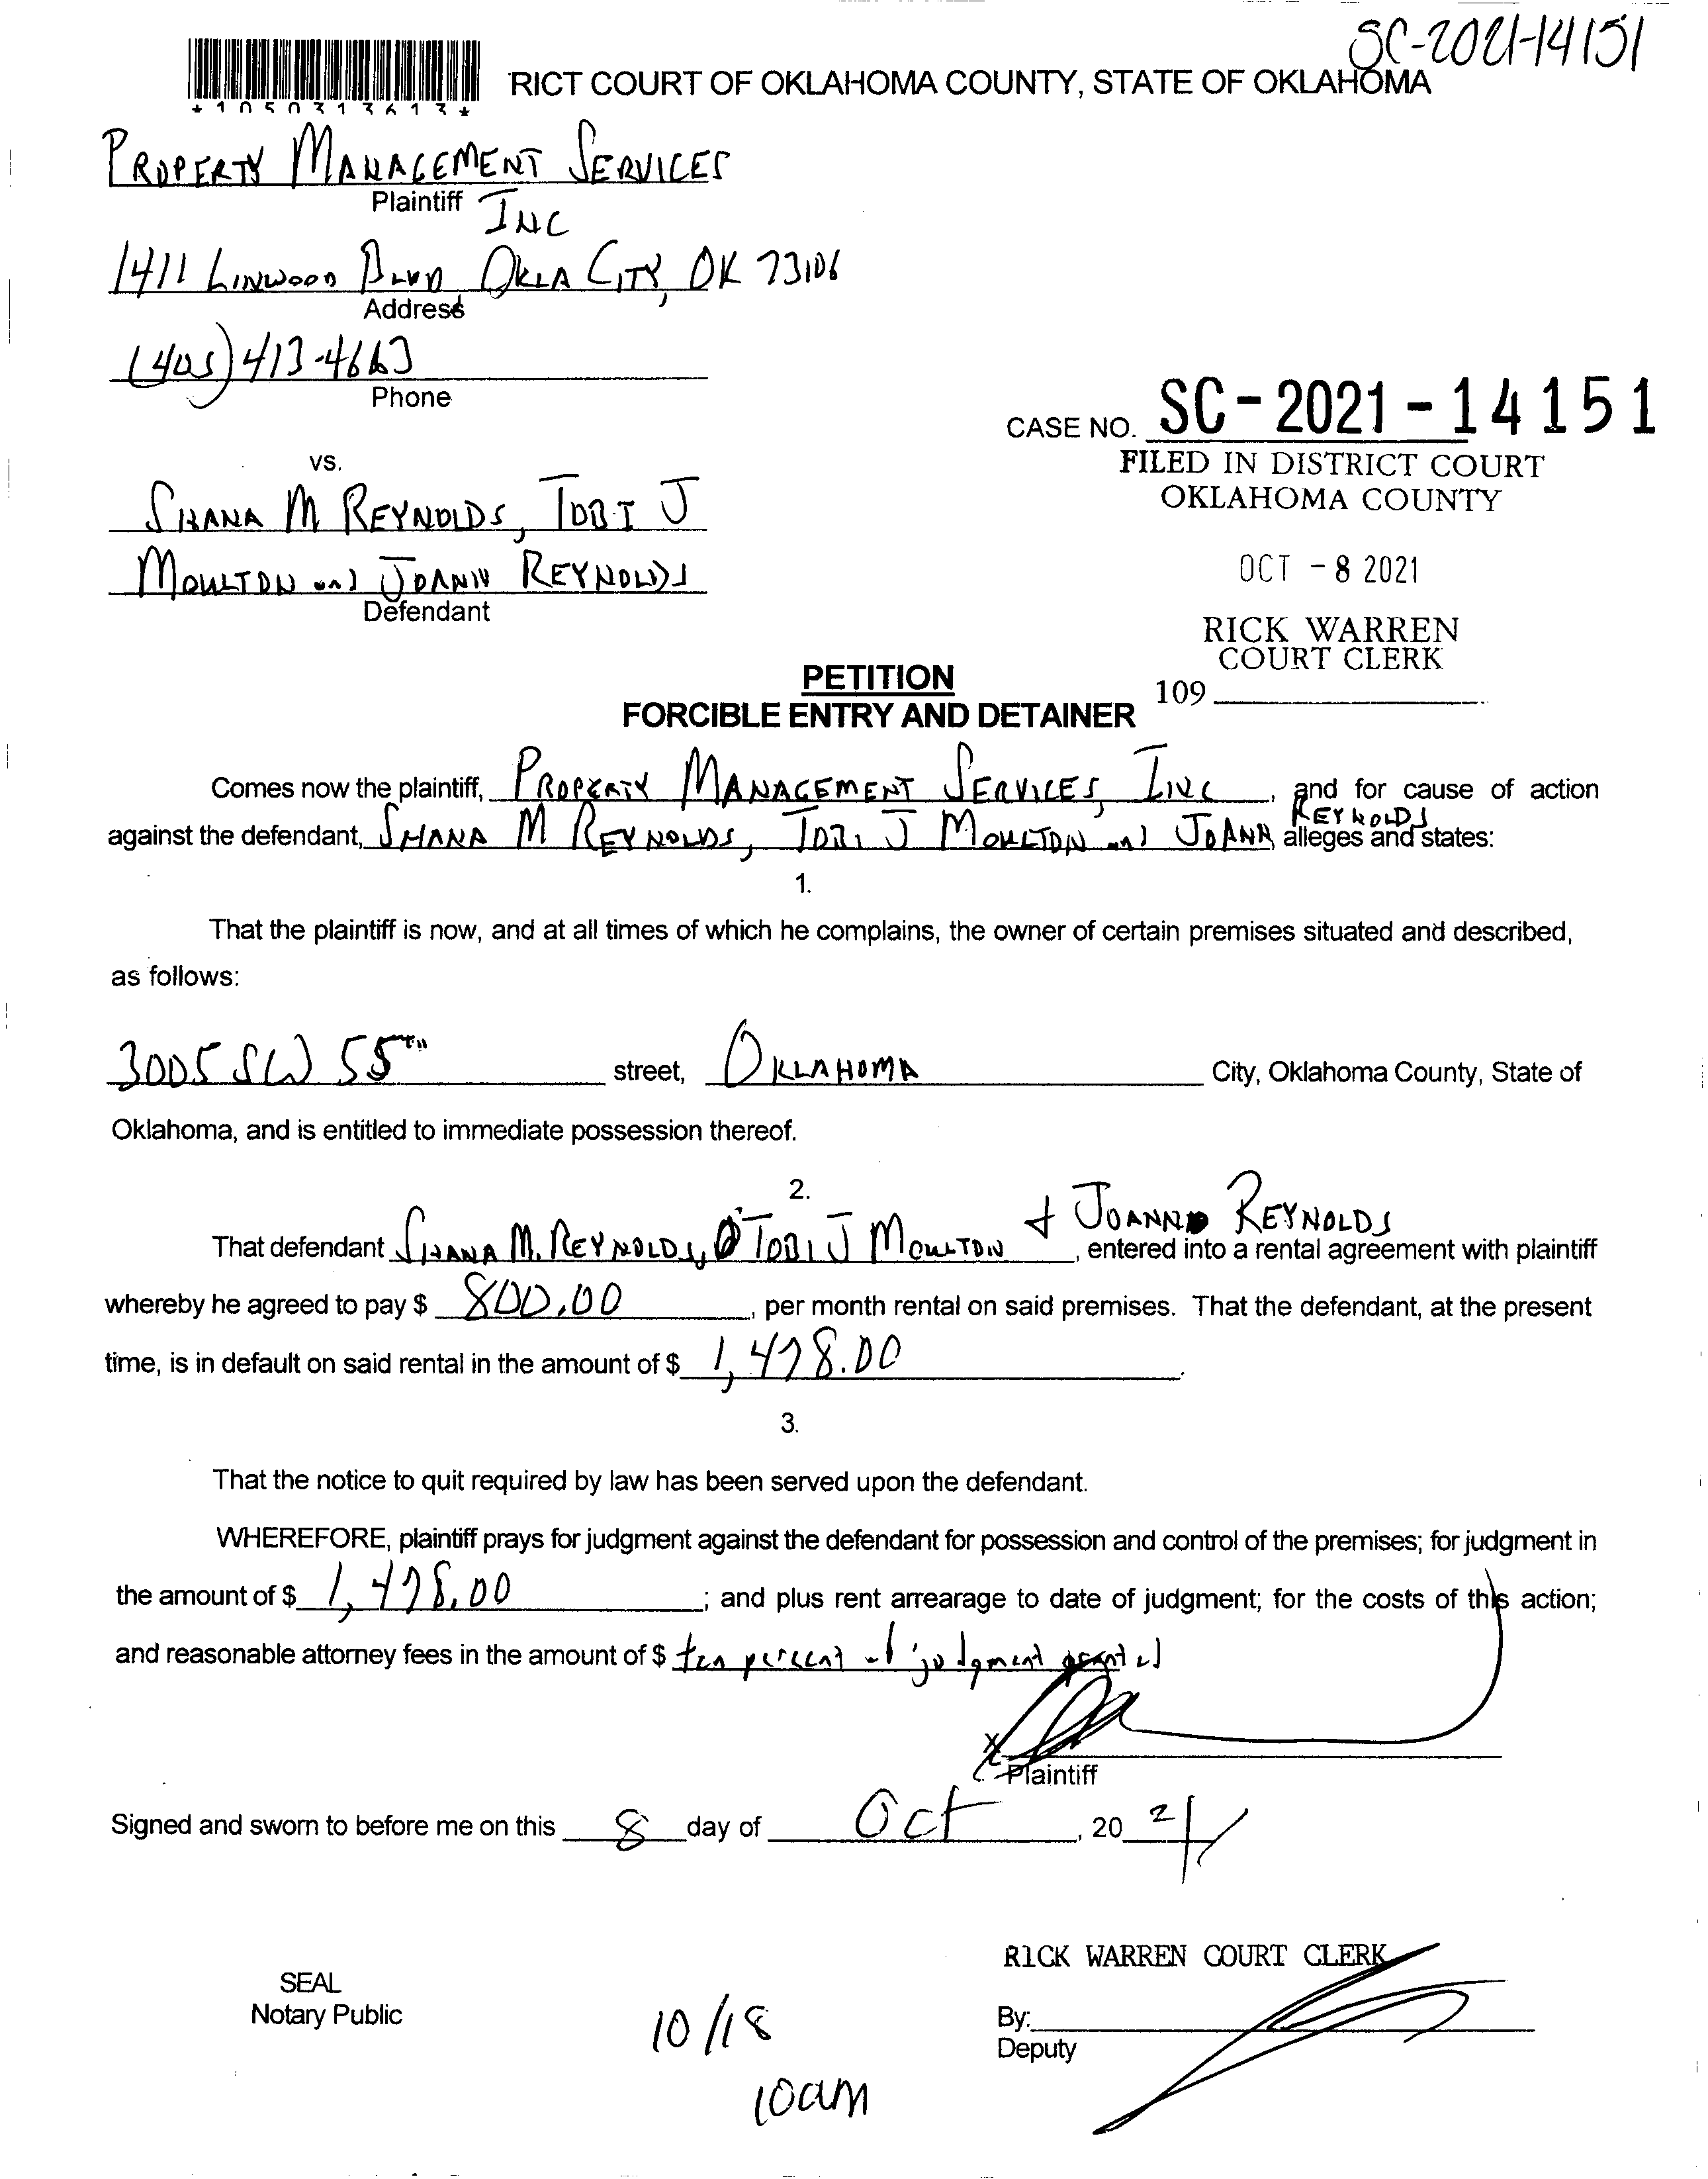 SC-2021-14151
*1050313613*
RICT COURT OF OKLAHOMA COUNTY, STATE OF OKLAHOMA
PROPERTY MANAGEMENT SERVICES
Plaintiff
INC
1411 LINWOOD BLVD OKLA CITY, OK 73106
Address
(405) 413-4663
Phone
CASE NO. SC-2021-14151
FILED IN DISTRICT COURT
OKLAHOMA COUNTY
vs.
SHANA M REYNOLDS, TOBI J
MOULTON and JOANN REYNOLDS
Defendant
OCT - 8 2021
RICK WARREN
COURT CLERK
109
PETITION
FORCIBLE ENTRY AND DETAINER
Comes now the plaintiff, PROPERTY MANAGEMENT SERVICES, INC, and for cause of action
REYNOLDS
against the defendant, SHANA M REYNOLDS, TOBI J MOULTON and JOANN alleges and states:
1.
That the plaintiff is now, and at all times of which he complains, the owner of certain premises situated and described,
as follows:
3005 SW 55TH street, OKLAHOMA City, Oklahoma County, State of
Oklahoma, and is entitled to immediate possession thereof.
2.
+ JOANN REYNOLDS
That defendant SHANA M. REYNOLDS, TOBI J MOULTON, entered into a rental agreement with plaintiff
whereby he agreed to pay $ 800.00, per month rental on said premises. That the defendant, at the present
time, is in default on said rental in the amount of $ 1,478.00.
3.
That the notice to quit required by law has been served upon the defendant.
WHEREFORE, plaintiff prays for judgment against the defendant for possession and control of the premises; for judgment in
the amount of $ 1,478.00; and plus rent arrearage to date of judgment; for the costs of this action;
and reasonable attorney fees in the amount of $ ten percent of judgment granted
X
Plaintiff
Signed and sworn to before me on this 8 day of Oct, 20 21
RICK WARREN COURT CLERK
SEAL
Notary Public
By:
Deputy
10/18
10am